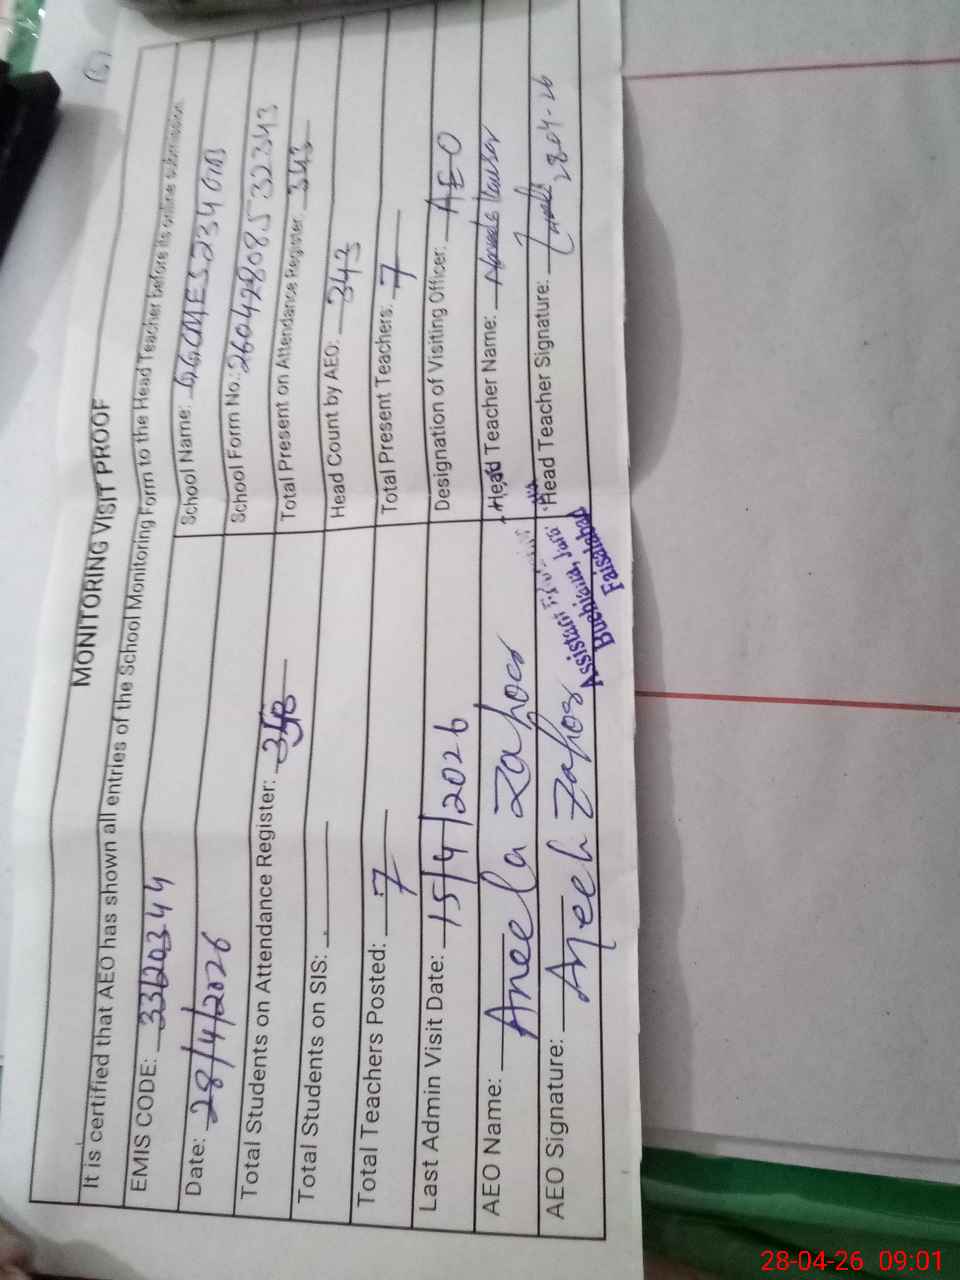 MONITORING VISIT PROOF
It is certified that AEO has shown all entries of the School Monitoring Form to the Head Teacher before its online submission.
EMIS CODE: 33120344 School Name: GGCMES 234 GB
Date: 28/4/2026 School Form No.: 2604280853 2343
Total Students on Attendance Register: Total Present on Attendance Register: 343
Total Students on SIS: Head Count by AEO: 343
Total Teachers Posted: 7 Total Present Teachers: 7
Last Admin Visit Date: 15/4/2026 Designation of Visiting Officer: AEO
AEO Name: Aneela Zahoor Head Teacher Name: Kausar
AEO Signature: Aneela Zahoor Head Teacher Signature: 28-04-26
Assistant
Faisalabad
28-04-26 09:01